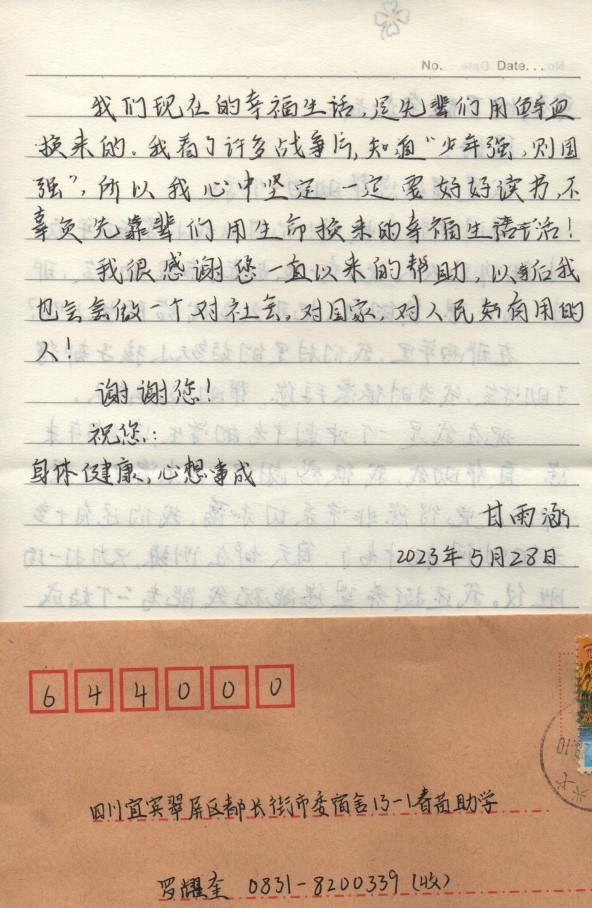 No. Date...
我们现在的幸福生活，是先辈们用鲜血
换来的。我看了许多战争片，知道“少年强，则国
强”，所以我心中坚定一定要好好读书，不
辜负先辈们用生命换来的幸福生活！
我很感谢您一直以来的帮助，以后我
也会做一个对社会，对国家，对人民有用的
人！
谢谢您！
祝您：
身体健康，心想事成
甘雨涵
2023年5月28日
644000
四川宜宾翠屏区都长街市委宿舍13-1春苗助学
罗耀奎 0831-8200339（收）